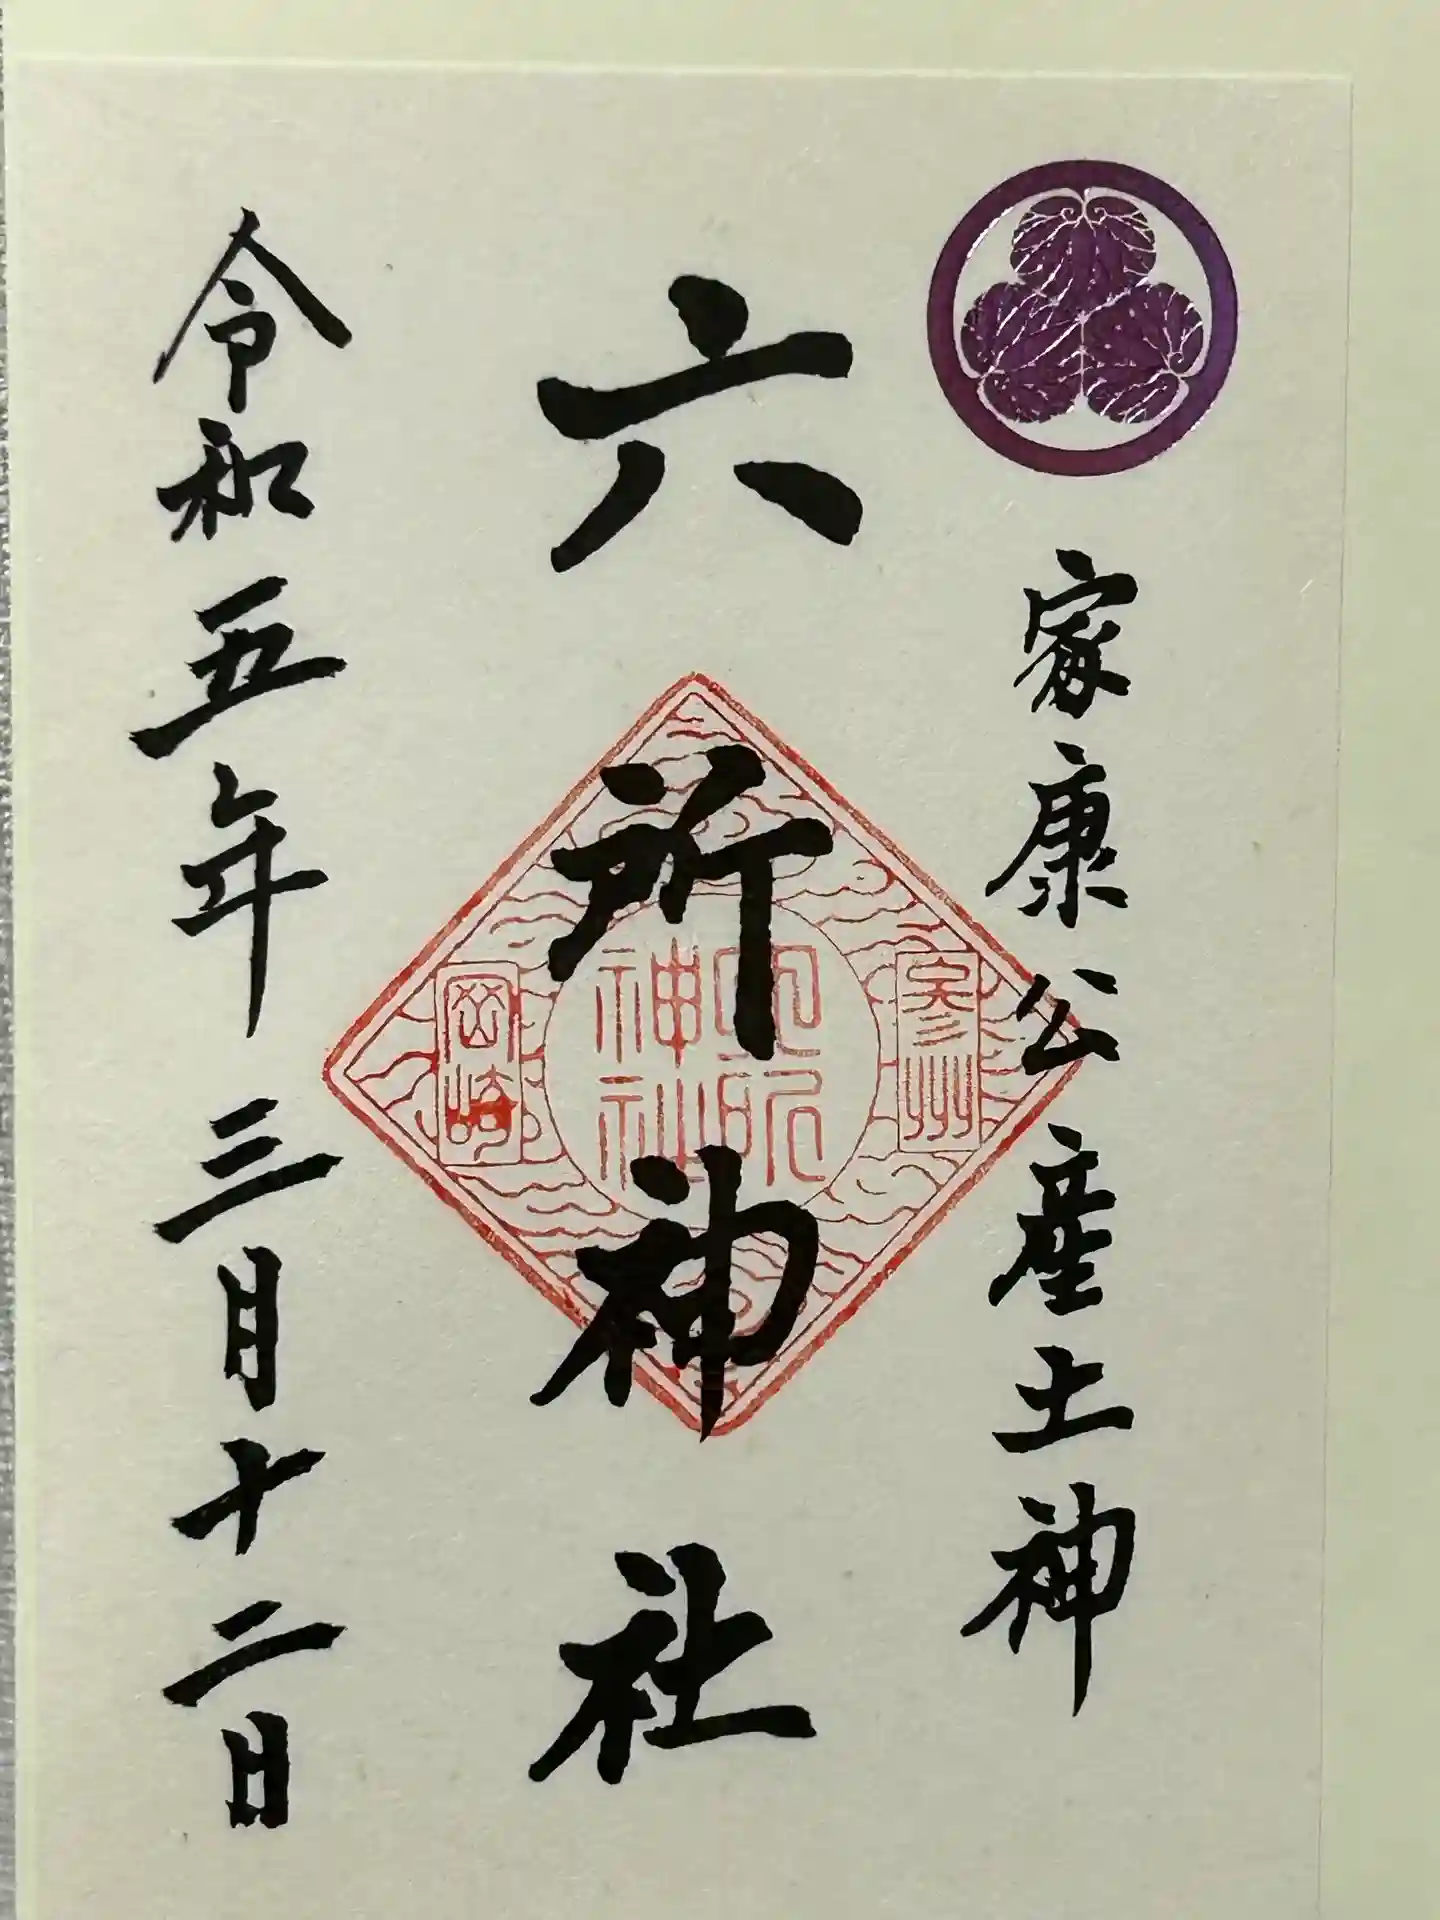 家康公産土神
六所神社
参州
六所
神社
岡崎
令和五年三月十二日